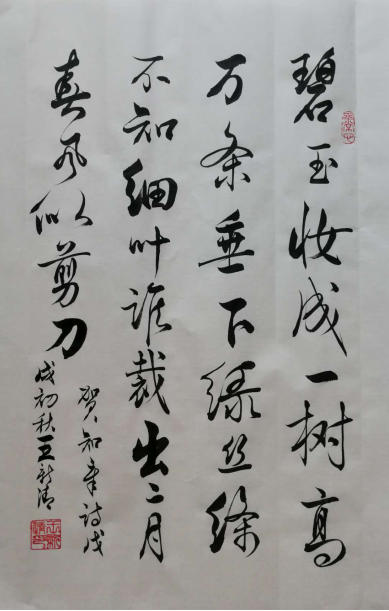 碧玉妆成一树高
万条垂下绿丝绦
不知细叶谁裁出二月
春风似剪刀
贺知章诗戊
戌初秋王新清